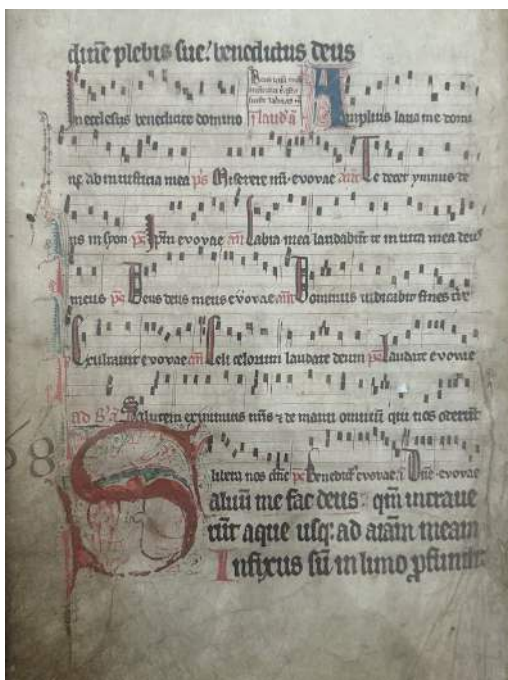 plebis sue. benedictus deus
In ecclesiis benedicite domino Amplius laua me domi
ne ab iniusticia mea ps Miserere mei. evovae an Te decet ymnus de
us in syon ps Ipm evovae an Labia mea laudabūt te in uita mea deus
meus ps Deus deus meus evovae ant Dominus iudicabit fines
Exultauit evovae an Celi celorum laudate deum ps Laudate evovae
Salutem ex inimicis nr̄is ⁊ de manu omniū qui nos oderūt
libera nos dn̄e ps Benedict evovae. Dn̄e evovae
aluū me fac deus: qm̄ intraue
rūt aque usq: ad aīam meam
Infixus sū in limo ꝓfundi: